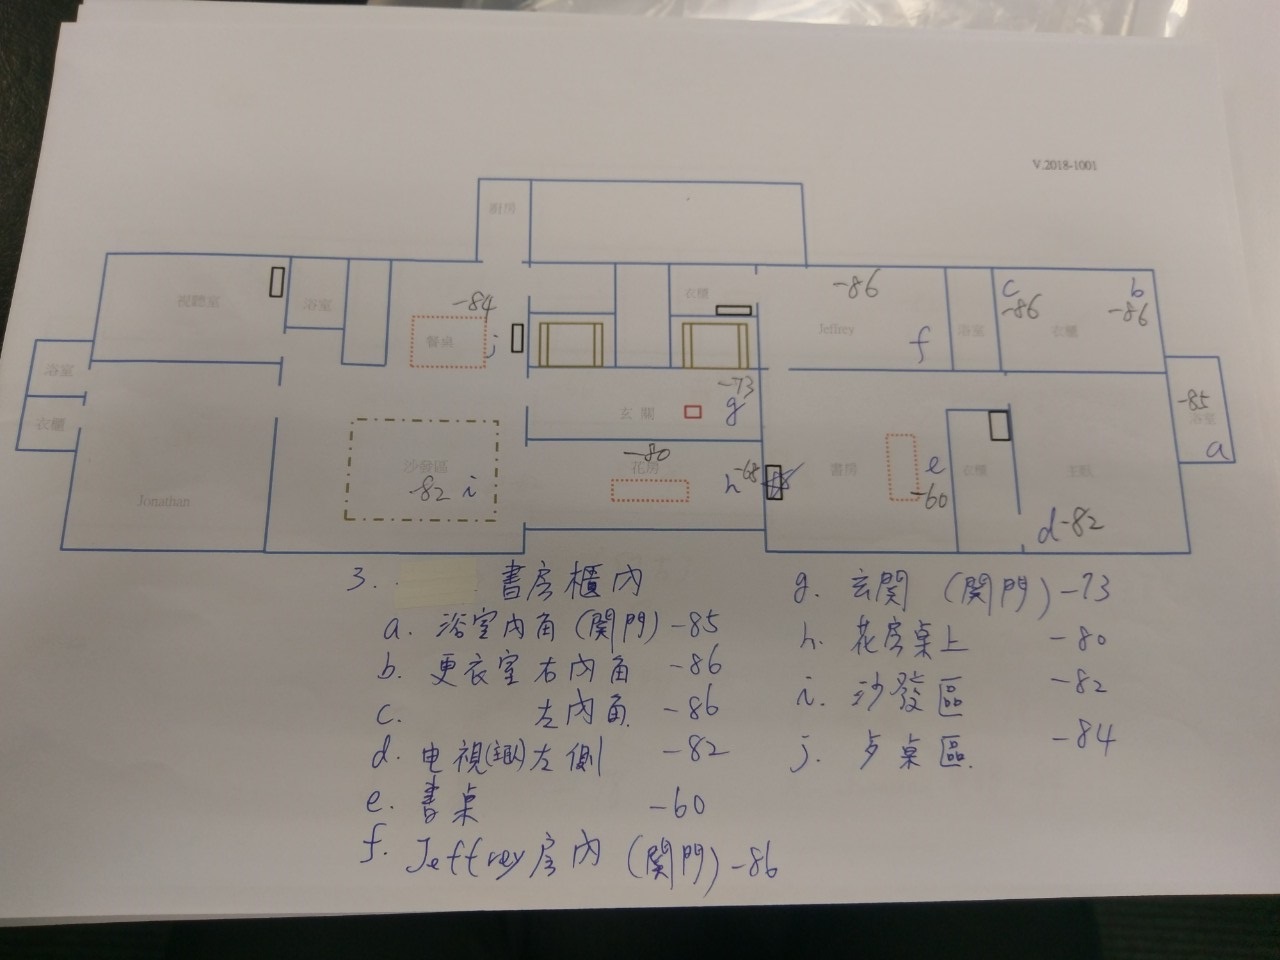 V.2018-1001
廚房
視聽室
浴室
衣櫃
-84
餐桌 j
-86
Jeffrey f
浴室
c
-86
衣櫃
b
-86
浴室
衣櫃
Jonathan
沙發區
-82 i
玄關
-73
g
-80
花房
h -68
書房
e
-60
衣櫃
主臥
d -82
-85
浴室
a
3. 書房櫃內
a. 浴室內角 (関門) -85
b. 更衣室右內角 -86
c. 左內角 -86
d. 电視(主臥)左側 -82
e. 書桌 -60
f. Jeffrey房內 (関門) -86
g. 玄関 (関門) -73
h. 花房桌上 -80
i. 沙發區 -82
j. 桌區. -84